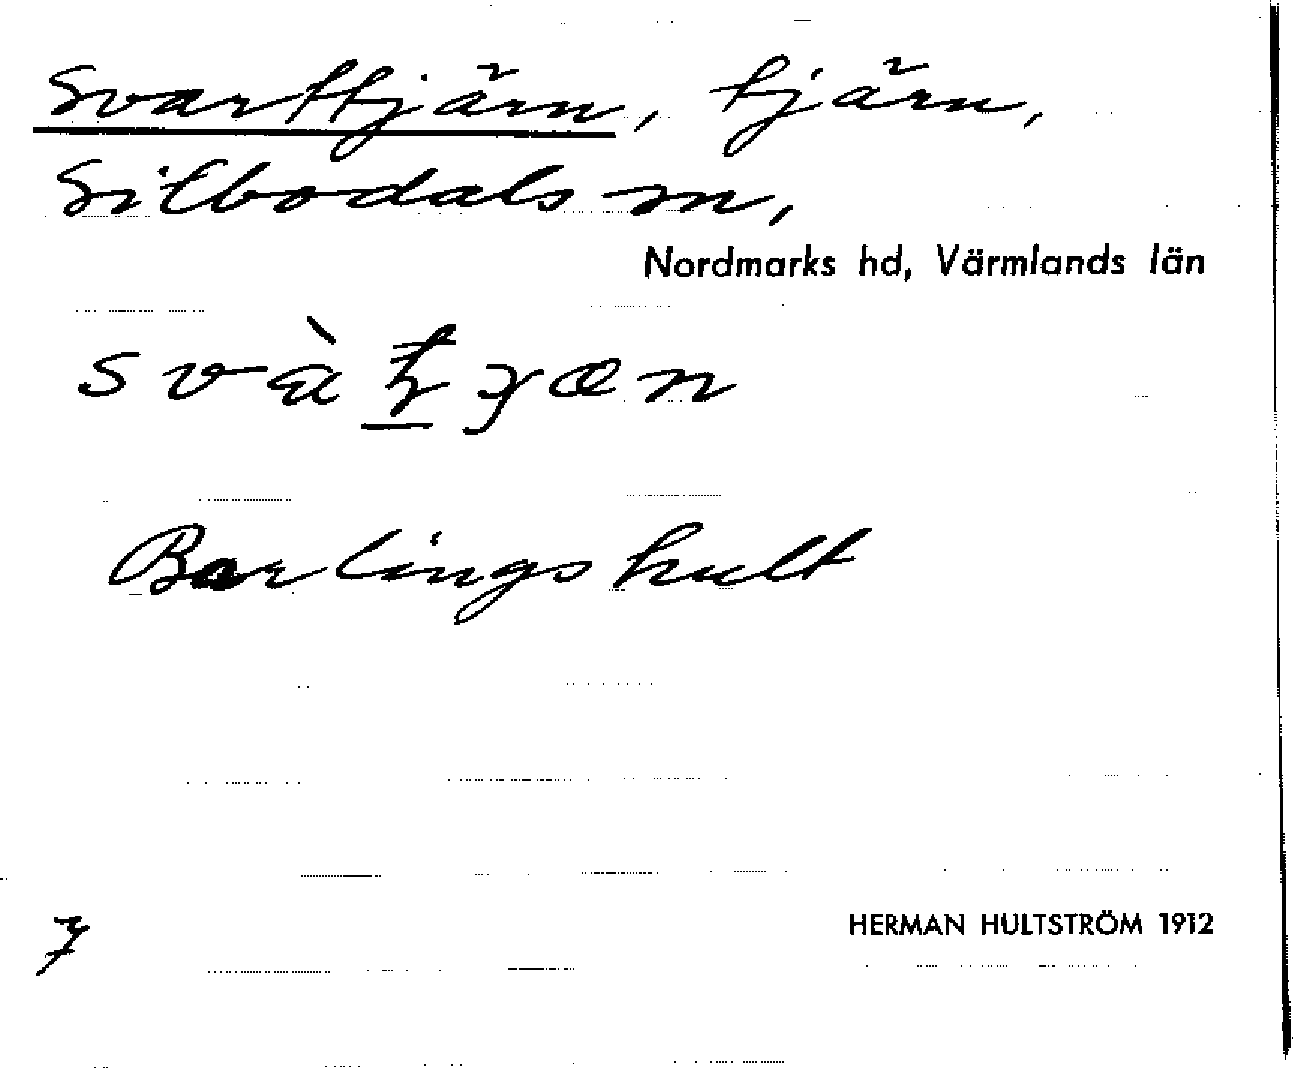 Svarttjärn, tjärn,
Silbodals sn,
Nordmarks hd, Värmlands län
Barlingshult
7
HERMAN HULTSTRÖM 1912